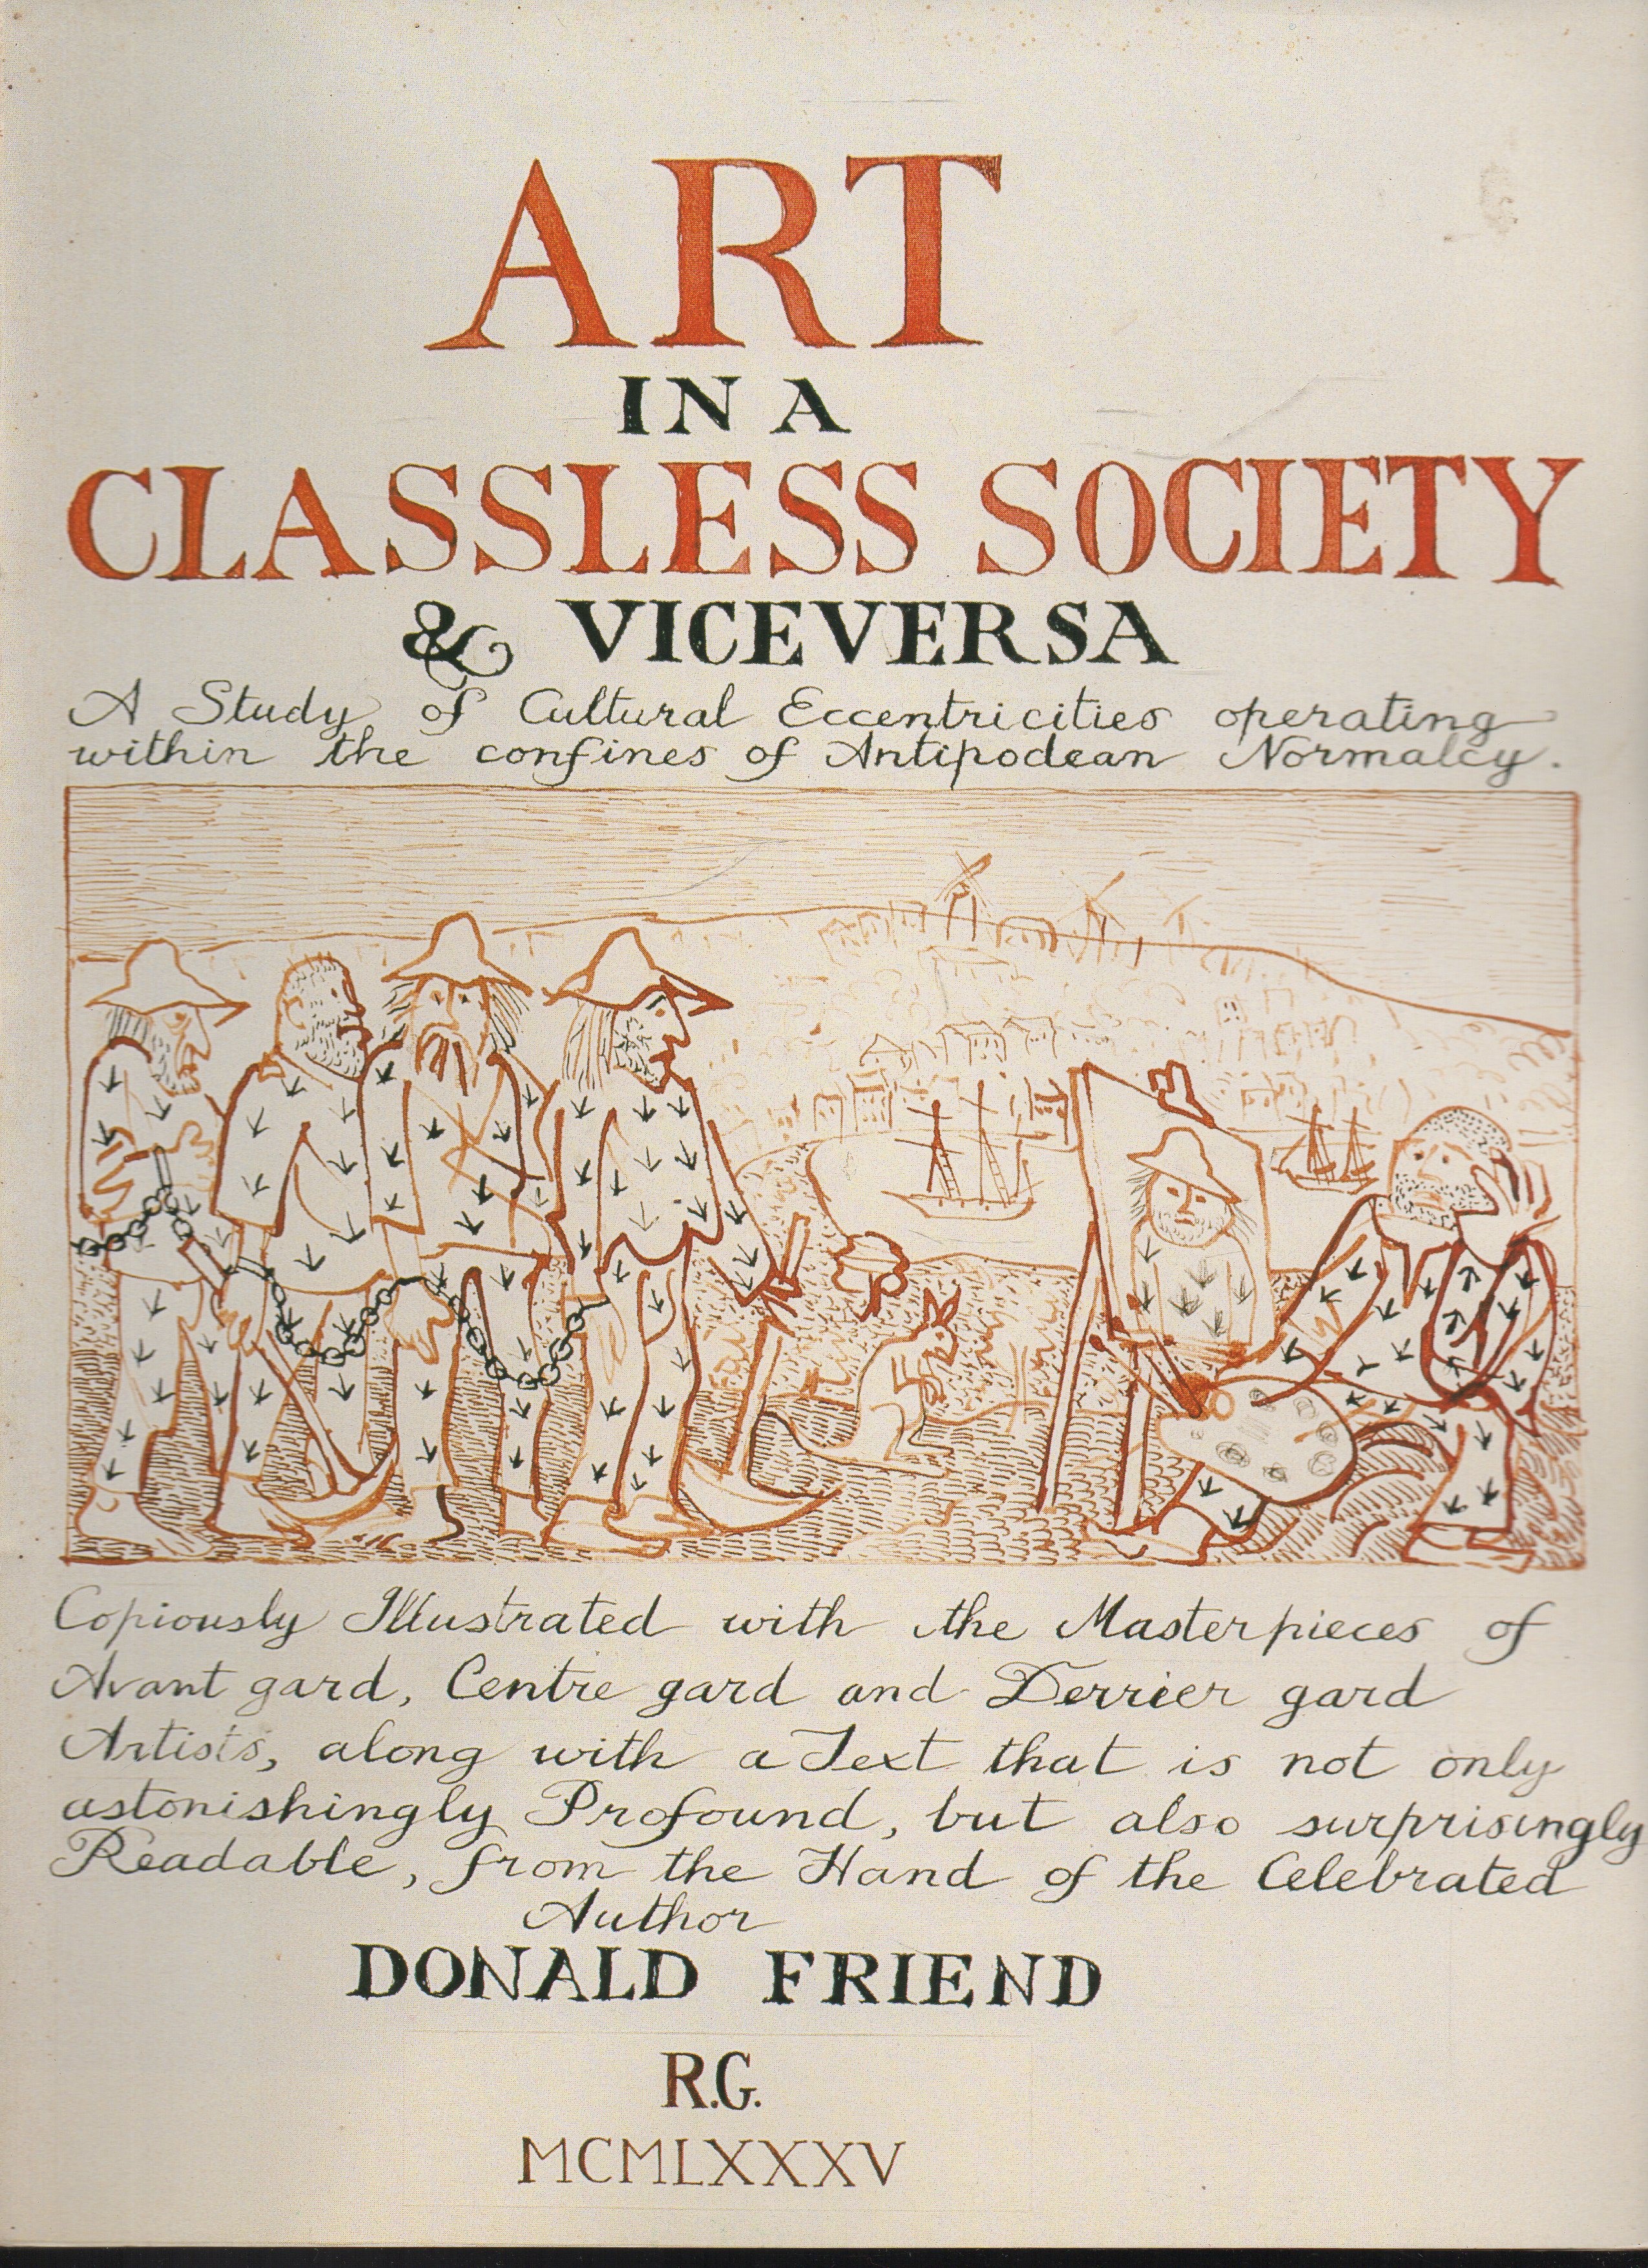 ART
IN A
CLASSLESS SOCIETY
& VICEVERSA
A Study of Cultural Eccentricities operating
within the confines of Antipodean Normalcy.
Copiously Illustrated with the Masterpieces of
Avant gard, Centre gard and Derrier gard
Artists, along with a Text that is not only
astonishingly Profound, but also surprisingly
Readable, from the Hand of the Celebrated
Author
DONALD FRIEND
R.G.
MCMLXXXV